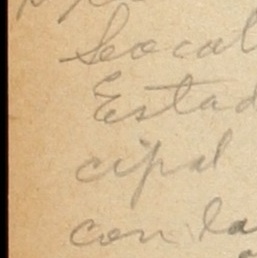 Local
Estad
cipal
con la